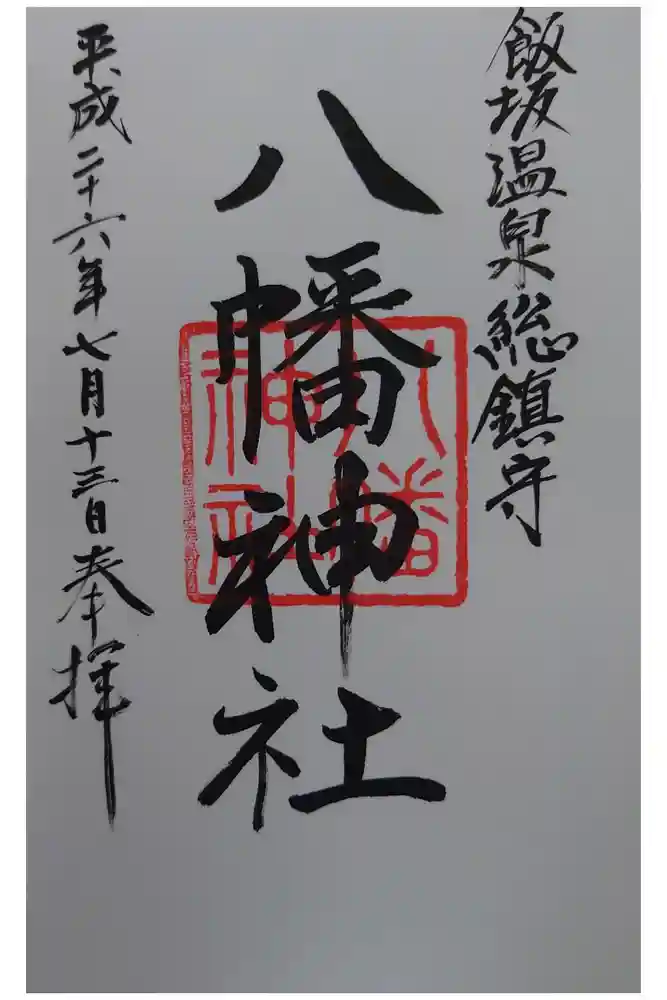 飯坂温泉総鎮守
八幡神社
八幡神社
平成二十六年七月十三日奉拝